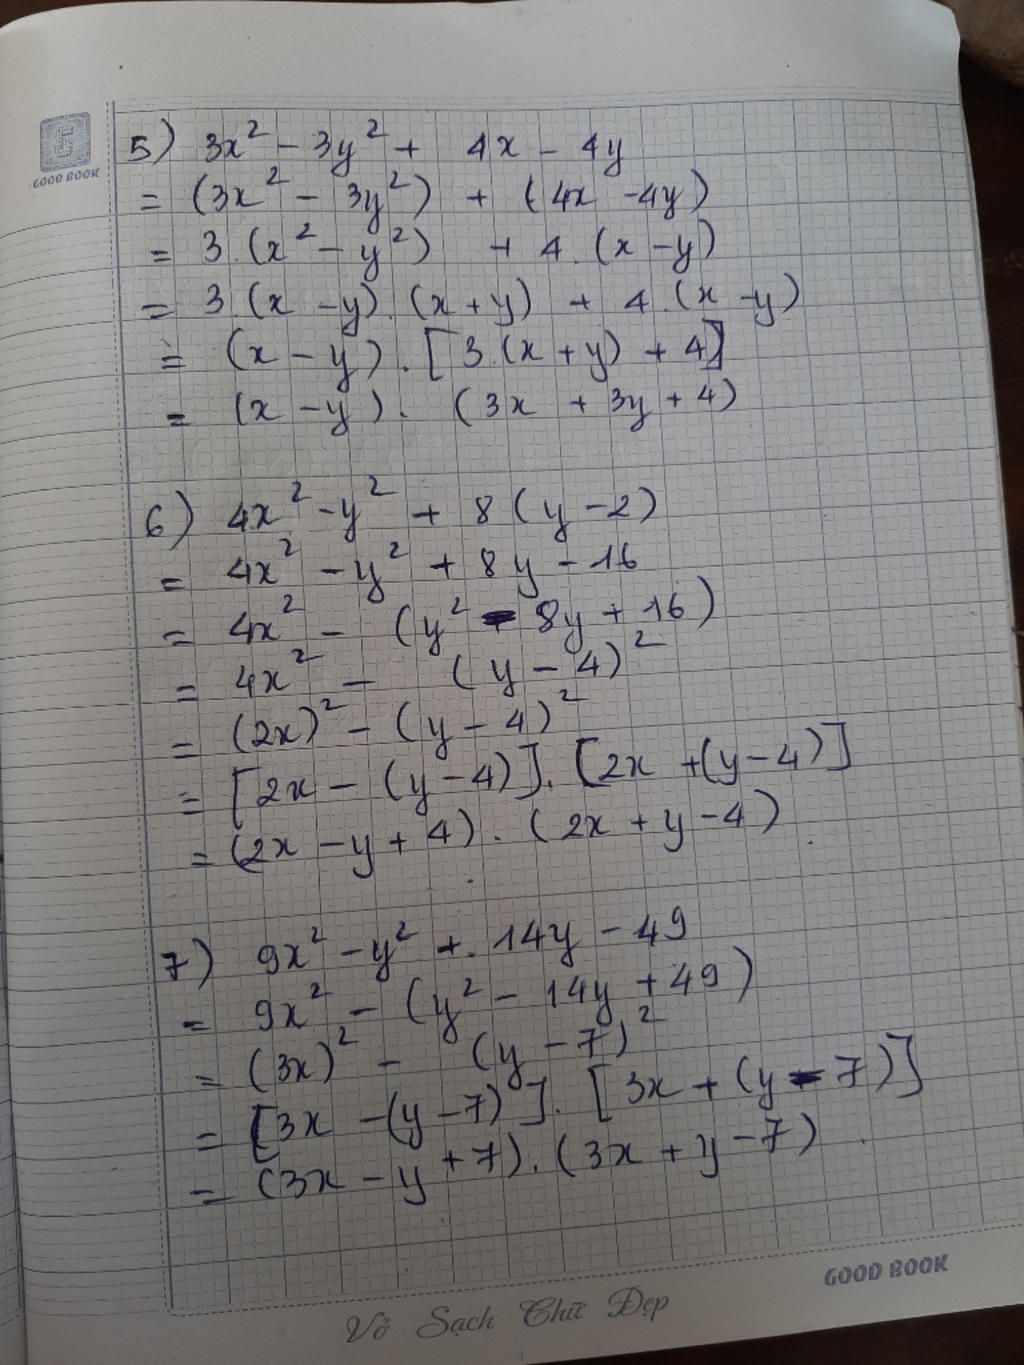 GOOD BOOK
5) 3x² - 3y² + 4x - 4y
= (3x² - 3y²) + (4x - 4y)
= 3.(x² - y²) + 4.(x - y)
= 3.(x - y).(x + y) + 4.(x - y)
= (x - y).[3.(x + y) + 4]
= (x - y).(3x + 3y + 4)
6) 4x² - y² + 8(y - 2)
= 4x² - y² + 8y - 16
= 4x² - (y² - 8y + 16)
= 4x² - (y - 4)²
= (2x)² - (y - 4)²
= [2x - (y - 4)].[2x + (y - 4)]
= (2x - y + 4).(2x + y - 4)
7) 9x² - y² + 14y - 49
= 9x² - (y² - 14y + 49)
= (3x)² - (y - 7)²
= [3x - (y - 7)].[3x + (y - 7)]
= (3x - y + 7).(3x + y - 7)
GOOD BOOK
Vở Sạch Chữ Đẹp